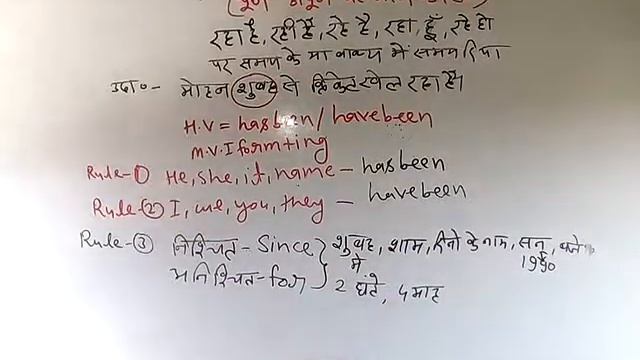 रहा है, रही है, रहे है, रहा, हूँ, रहे हो
पर समय के या वाक्य में समय दिया
उदा०- मोहन शुवह से क्रिकेट खेल रहा है।
H.V = has been / have been
M.V. I form + ing
Rule-① He, she, it, name - has been
Rule-② I, we, you, they - have been
Rule-③ निश्चित - Since } शुवह, शाम, दिनो के नाम, सन्, बजे
में 1990
अनिश्चित - for } 2 घंटे, 4 माह